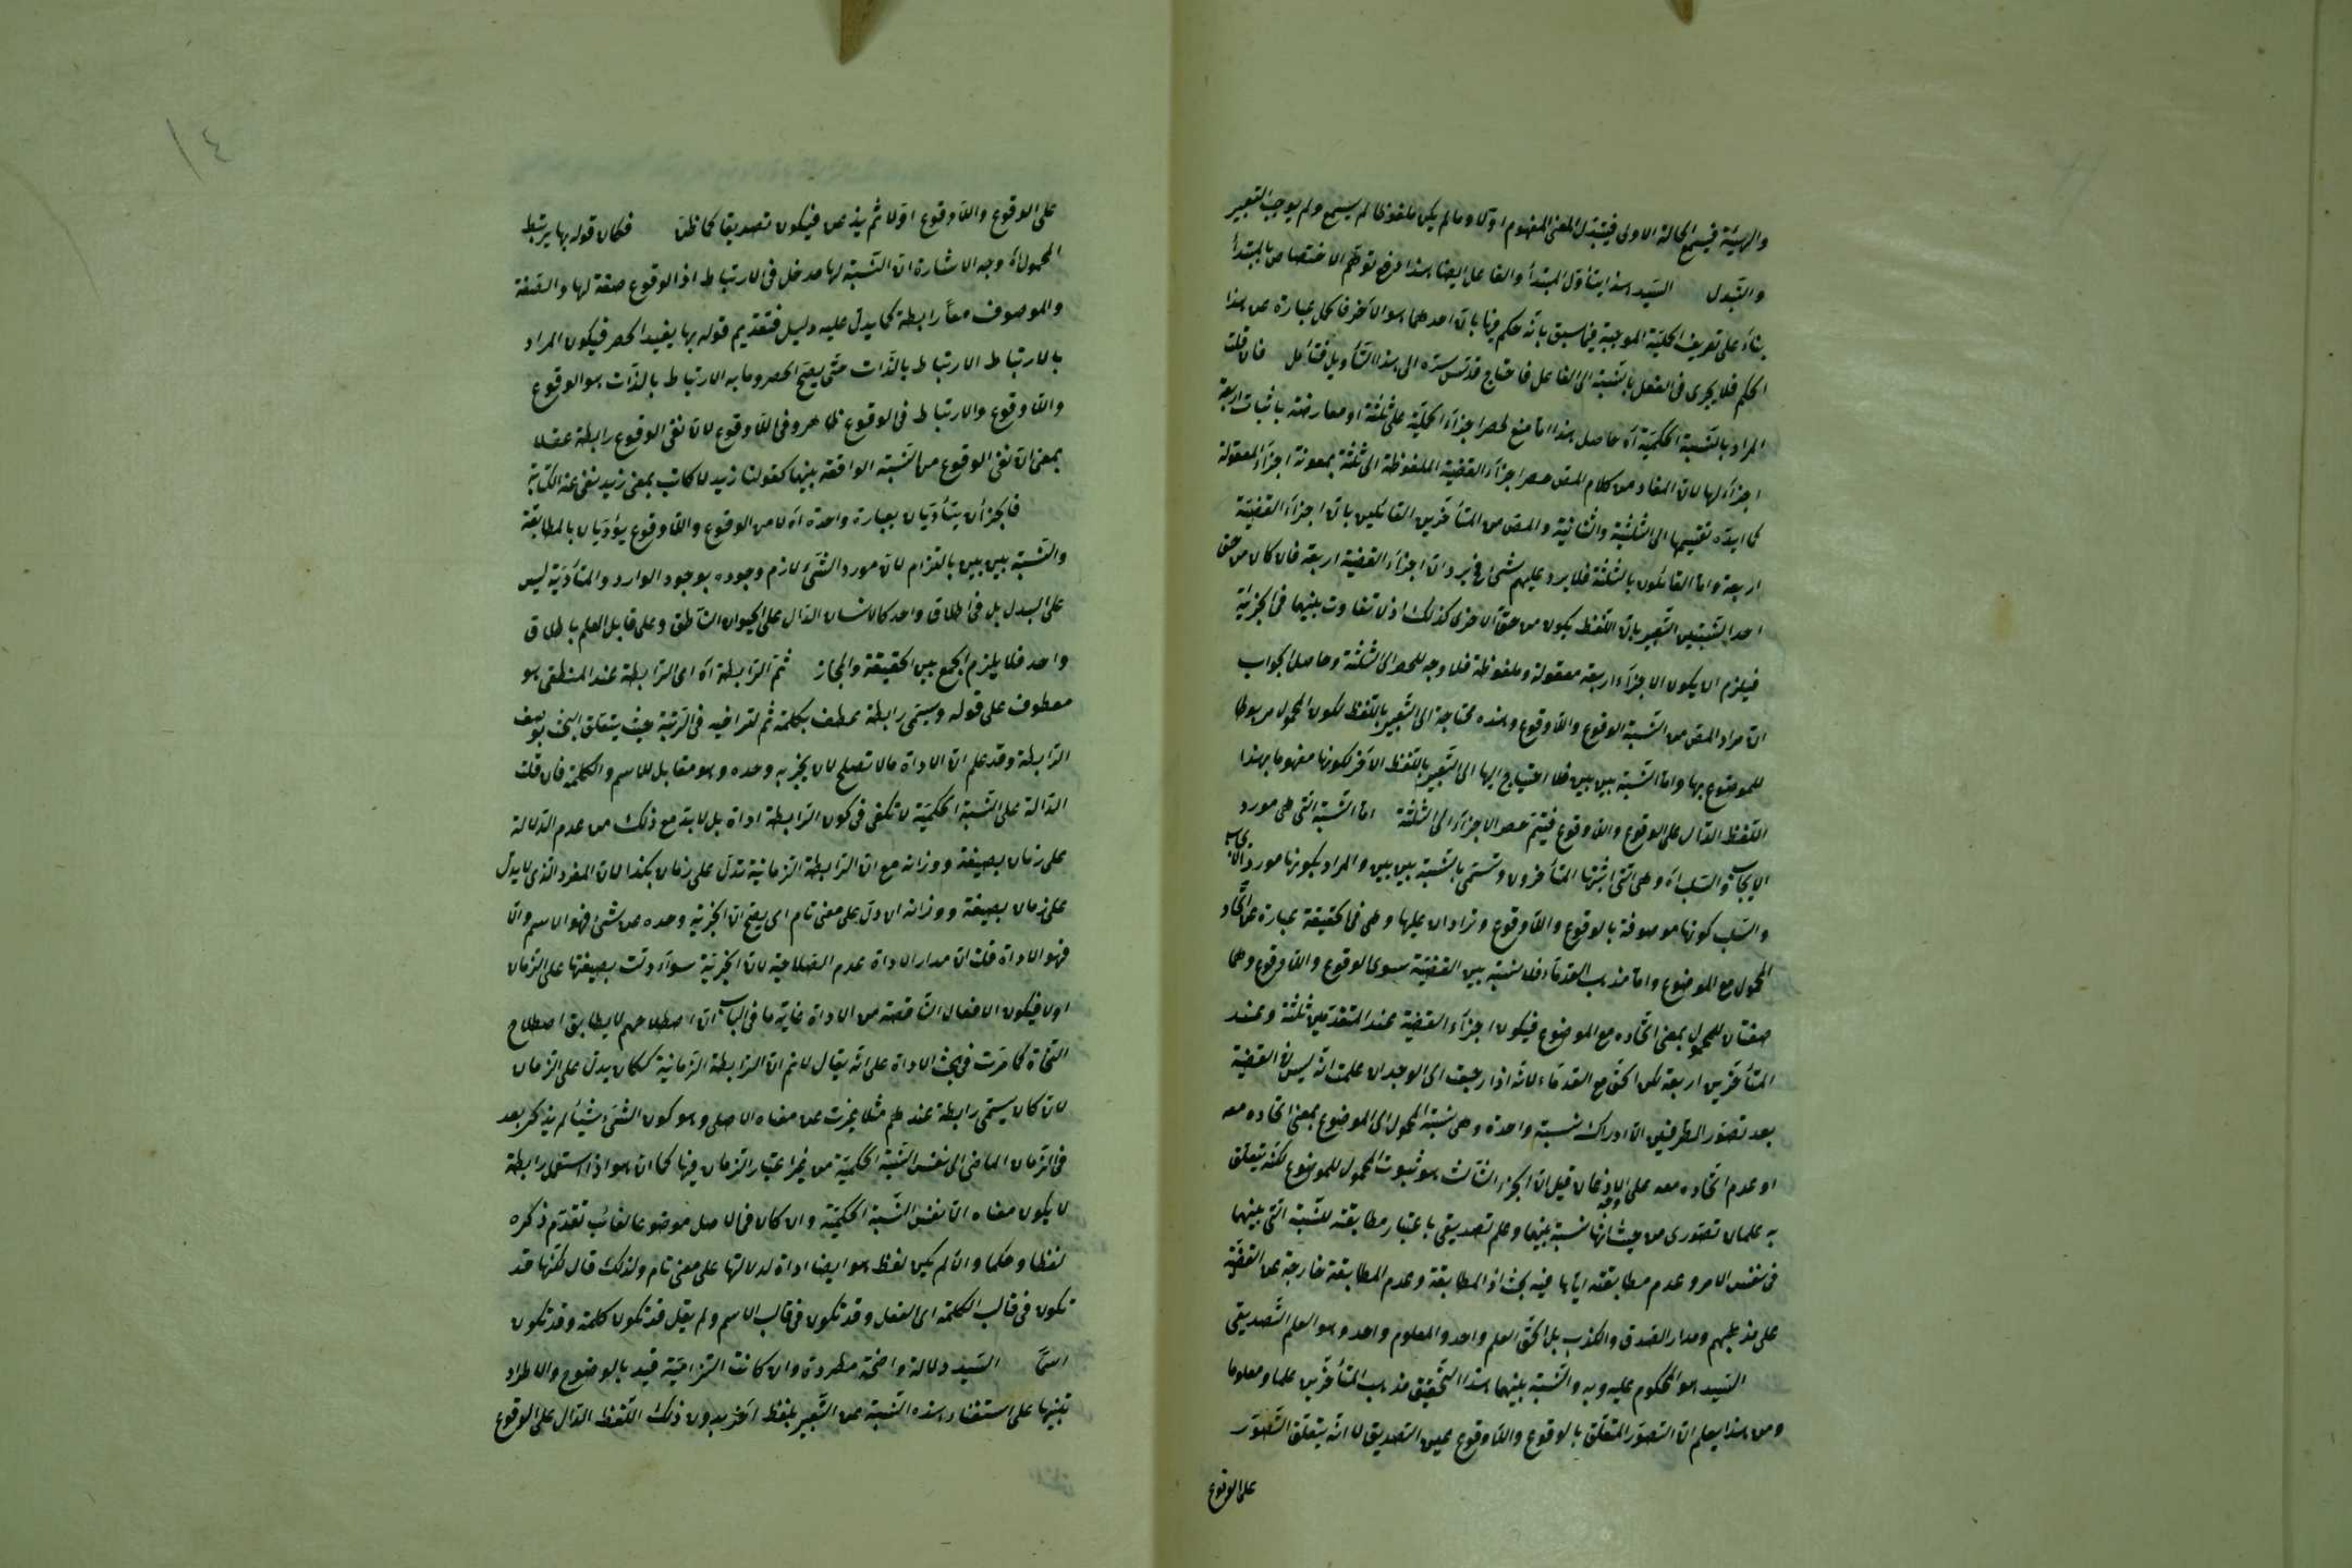 والهيئة فيسمع الحالة الاولى فيتبدل المعنى المفهوم اولا وما لم يكن ملفوظا لم يسمع ولم يوجب التعبير
والتبدل السيد هذا يتأول المبتدأ والفاعل ايضا هذا دفع توهم الاختصاص بالمبتدأ
بناء على تعريف الحملية الموجبة فيما سبق بانه حكم فيها بان احدهما هو الآخر فالحمل عبارة عن هذا
الحكم فلا يجرى فى الفعل بالنسبة الى الفاعل فاحتاج قدس سره الى هذا التأويل فتأمل فان قلت
المراد بالنسبة الحكمية آه حاصل هذا اما منع لحصر اجزاء الحملية على ثلثة او معارضة باثبات اربعة
اجزاء لها لان المفاد من كلام المص حصر اجزاء القضية الملفوظة الى ثلثة بمعونة اجزاء المعقولة
كما ايده تقسيمها الى الثلثية والثنائية والمص من المتأخرين القائلين بان اجزاء القضية
اربعة واما القائلون بالثلثة فلا يرد عليهم شئ فيرد ان اجزاء القضية اربعة فان كان من حق
احد النسبتين التعبير بان اللفظ يكون من حق الاخرى كذلك اذ لا تفاوت بينهما فى الجزئية
فيلزم ان يكون الاجزاء اربعة معقولة وملفوظة فلا وجه للحصر الى الثلثة وحاصل الجواب
ان مراد المص من النسبة الوقوع واللاوقوع وهذه محتاجة الى التعبير باللفظ لكون المحمول مربوطا
للموضوع بها واما النسبة بين بين فلا احتياج اليها الى التعبير باللفظ الآخر لكونها مفهوما بهذا
اللفظ الدال على الوقوع واللاوقوع فيتم حصر الاجزاء الى الثلثة اما النسبة التى هى مورد
الايجاب والسلب آه وهى التى اثبتها المتأخرون وتسمى بالنسبة بين بين والمراد بكونها مورد الايجاب
والسلب كونها موصوفة بالوقوع واللاوقوع ويرادان عليها وهى فى الحقيقة عبارة عن اتحاد
المحمول مع الموضوع واما مذهب القدماء فلا نسبة بين القضية سوى الوقوع واللاوقوع وهما
صفتان للمحمول بمعنى اتحاده مع الموضوع فيكون اجزاء القضية عند المتقدمين ثلثة وعند
المتأخرين اربعة لكن الحق مع القدماء لانه اذا رجعت الى الوجدان علمت انه ليس فى القضية
بعد تصور الطرفين الا ادراك نسبة واحدة وهى نسبة المحمول الى الموضوع بمعنى اتحاده معه
او عدم اتحاده معه على وجه الاذعان قيل ان الجزء الثالث هو ثبوت المحمول للموضوع لكنه يتعلق
به علمان تصورى من حيث انها نسبة بينهما وعلم تصديقى باعتبار مطابقته للنسبة التى بينهما
فى نفس الامر وعدم مطابقته اياها فيه بحث اذ المطابقة وعدم المطابقة خارجة عن القضية
على مذهبهم ومدار الصدق والكذب بل الحق العلم واحد والمعلوم واحد وهو العلم التصديقى
السيد هو المحكوم عليه وبه والنسبة بينهما هذا التحقيق مذهب المتأخرين علما ومعلوما
ومن هذا يعلم ان التصور المتعلق بالوقوع واللاوقوع عين التصديق لا انه يتعلق التصور
على الوقوع
على الوقوع واللاوقوع اولا ثم يذعن فيكون تصديقا كما ظن فكان قوله بها يرتبط
المحمول آه وجه الاشارة ان النسبة لها مدخل فى الارتباط اذ الوقوع صفة لها والصفة
والموصوف معا رابطة كما يدل عليه دليل فتقديم قوله بها يفيد الحصر فيكون المراد
بالارتباط الارتباط بالذات حتى يصح الحصر وما به الارتباط بالذات هو الوقوع
واللاوقوع والارتباط فى الوقوع ظاهر وفى اللاوقوع لان نفى الوقوع رابطة عقلا
بمعنى ان نفى الوقوع من النسبة الواقعة بينهما كقولنا زيد لا كاتب بمعنى زيد نفى عنه الكتابة
فالجزآن يتأديان بعبارة واحدة آه لان الوقوع واللاوقوع يؤديان بالمطابقة
والنسبة بين بين بالتزام لان مورد الشئ لازم وجوده بوجود الوارد والمتأدية ليس
على البدل بل فى اطلاق واحد كالانسان الدال على الحيوان الناطق وعلى قابل العلم باطلاق
واحد فلا يلزم الجمع بين الحقيقة والمجاز ثم الرابطة آه اى الرابطة عند المنطقى هو
معطوف على قوله ويسمى رابطة عطف بكلمة ثم لتراخيه فى الرتبة حيث يتعلق البحث بوصف
الرابطة وقد علم ان الاداة ما لا تصلح لان يخبر به وحده وهو مقابل للاسم والكلمة فان قلت
الدالة على النسبة الحكمية لا تكفى فى كون الرابطة اداة بل لابد مع ذلك من عدم الدلالة
على زمان بصيغة ووزانه مع ان الرابطة الزمانية تدل على زمان هكذا لان المفرد الذى لا يدل
على زمان بصيغة ووزانه ان دل على معنى تام اى يصح ان اخبر به وحده عن شئ فهو الاسم والا
فهو الاداة قلت ان مدار الاداة عدم الصلاحية لان اخبر به سواء دلت بصيغتها على الزمان
اولا فيكون الافعال الناقصة من الاداة غاية ما فى الباب ان اصطلاحهم لا يطابق اصطلاح
النحاة كما مرت فى بحث الاداة على انه يقال لانم ان الرابطة الزمانية ككان يدل على الزمان
لان كان يسمى رابطة عندهم مثلا يخرت عن معناه الاصلى وهو كون الشئ شيئا لم يذكر بعد
فى الزمان الماضى الى نفس النسبة الحكمية من غير اعتبار الزمان فيها كما ان هو اذا استعمل رابطة
لا يكون معناه الا نفس النسبة الحكمية وان كان فى الاصل موضوعا لغائب تقدم ذكره
لفظا وحكما وان لم يكن لفظ هو ايضا اداة لدلالتها على معنى تام ولذلك قال لكنها قد
تكون فى قالب الكلمة اى الفعل وقد تكون فى قالب الاسم ولم يقل قد تكون كلمة وقد تكون
اسما السيد دلالة واضحة مطردة وان كانت التزامية قيد بالوضوح والاطراد
تنبيها على استغناء هذه النسبة عن التعبير بلفظ آخر بدون ذلك اللفظ الدال على الوقوع
١٤